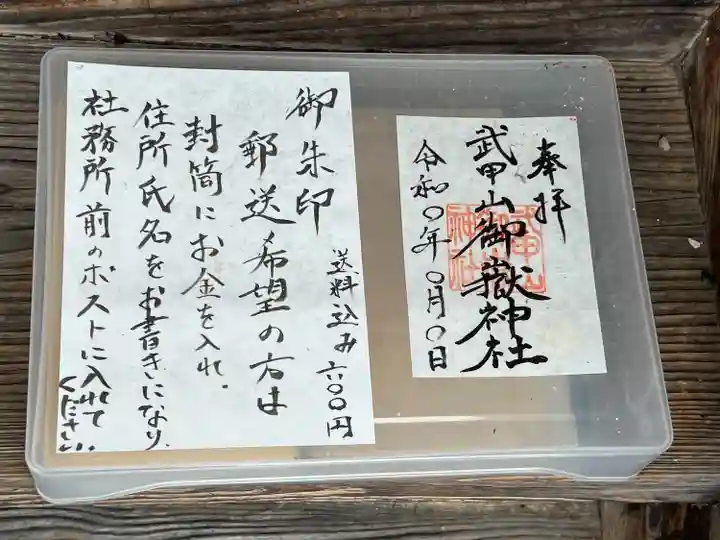 奉拝
武甲山御嶽神社
武甲山
御嶽
神社
令和〇年〇月〇日
御朱印
郵送希望の方は
送料込み 六〇〇円
封筒にお金を入れ、
住所氏名をお書きになり、
社務所前のポストに入れて
ください。